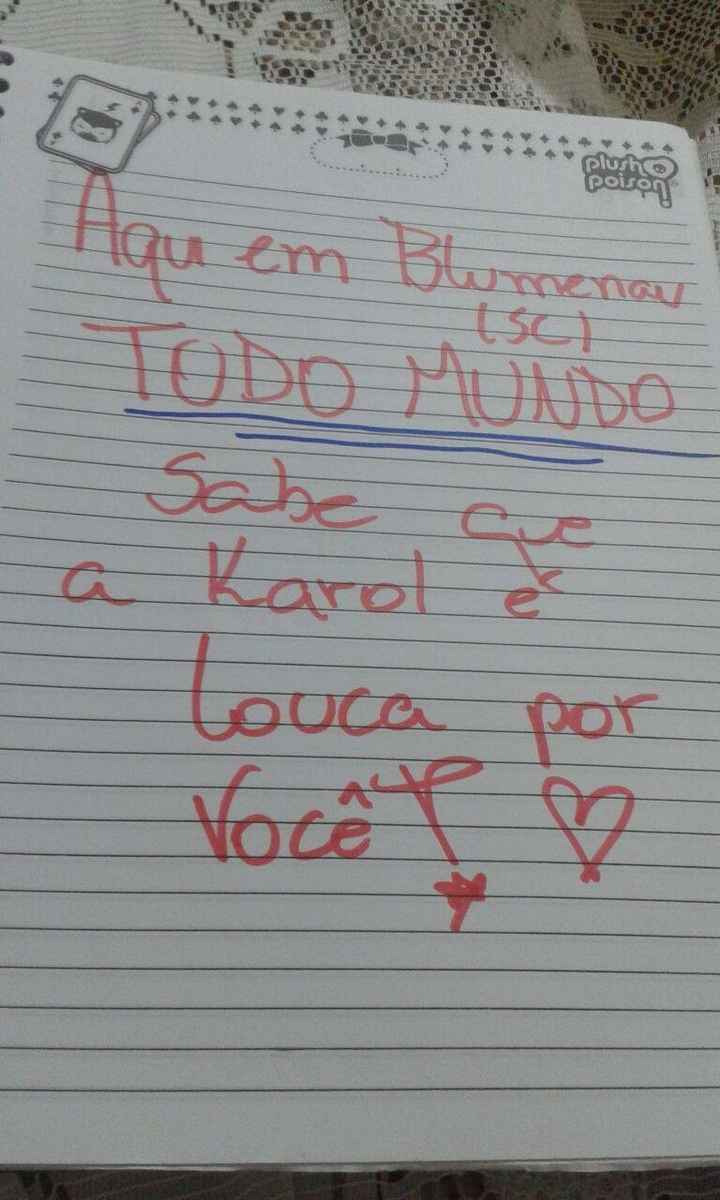 plush
poison!
Aqui em Blumenau
(SC)
TODO MUNDO
Sabe que
a Karol é
louca por
Você!